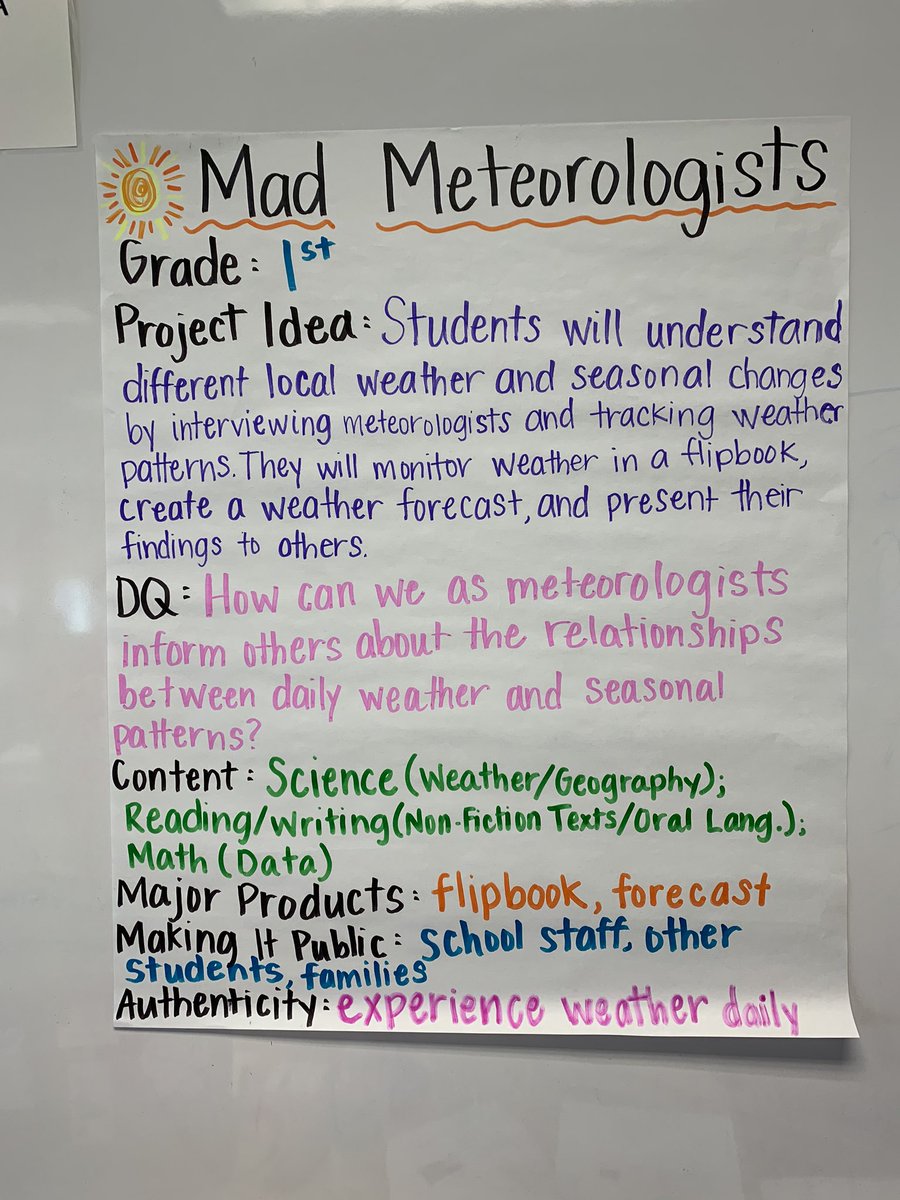 A
Mad Meteorologists
Grade: 1st
Project Idea: Students will understand
different local weather and seasonal changes
by interviewing meteorologists and tracking weather
patterns. They will monitor weather in a flipbook,
create a weather forecast, and present their
findings to others.
DQ: How can we as meteorologists
inform others about the relationships
between daily weather and seasonal
patterns?
Content: Science (Weather/Geography);
Reading/Writing (Non-Fiction Texts/Oral Lang.);
Math (Data)
Major Products: flipbook, forecast
Making It Public: School staff, other
students, families
Authenticity: experience weather daily